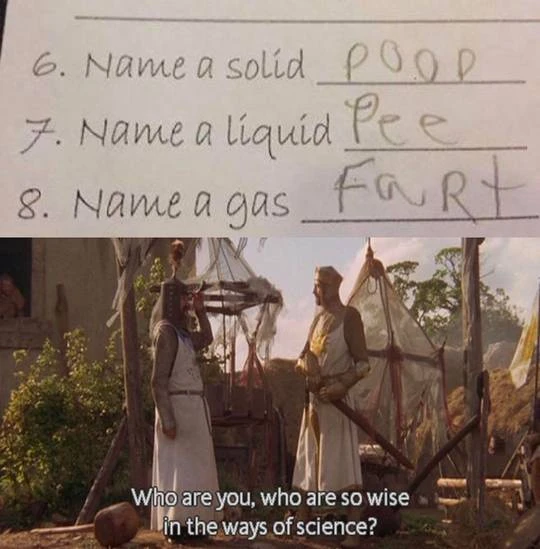 6. Name a solid poop
7. Name a liquid Pee
8. Name a gas FaRt
Who are you, who are so wise
in the ways of science?